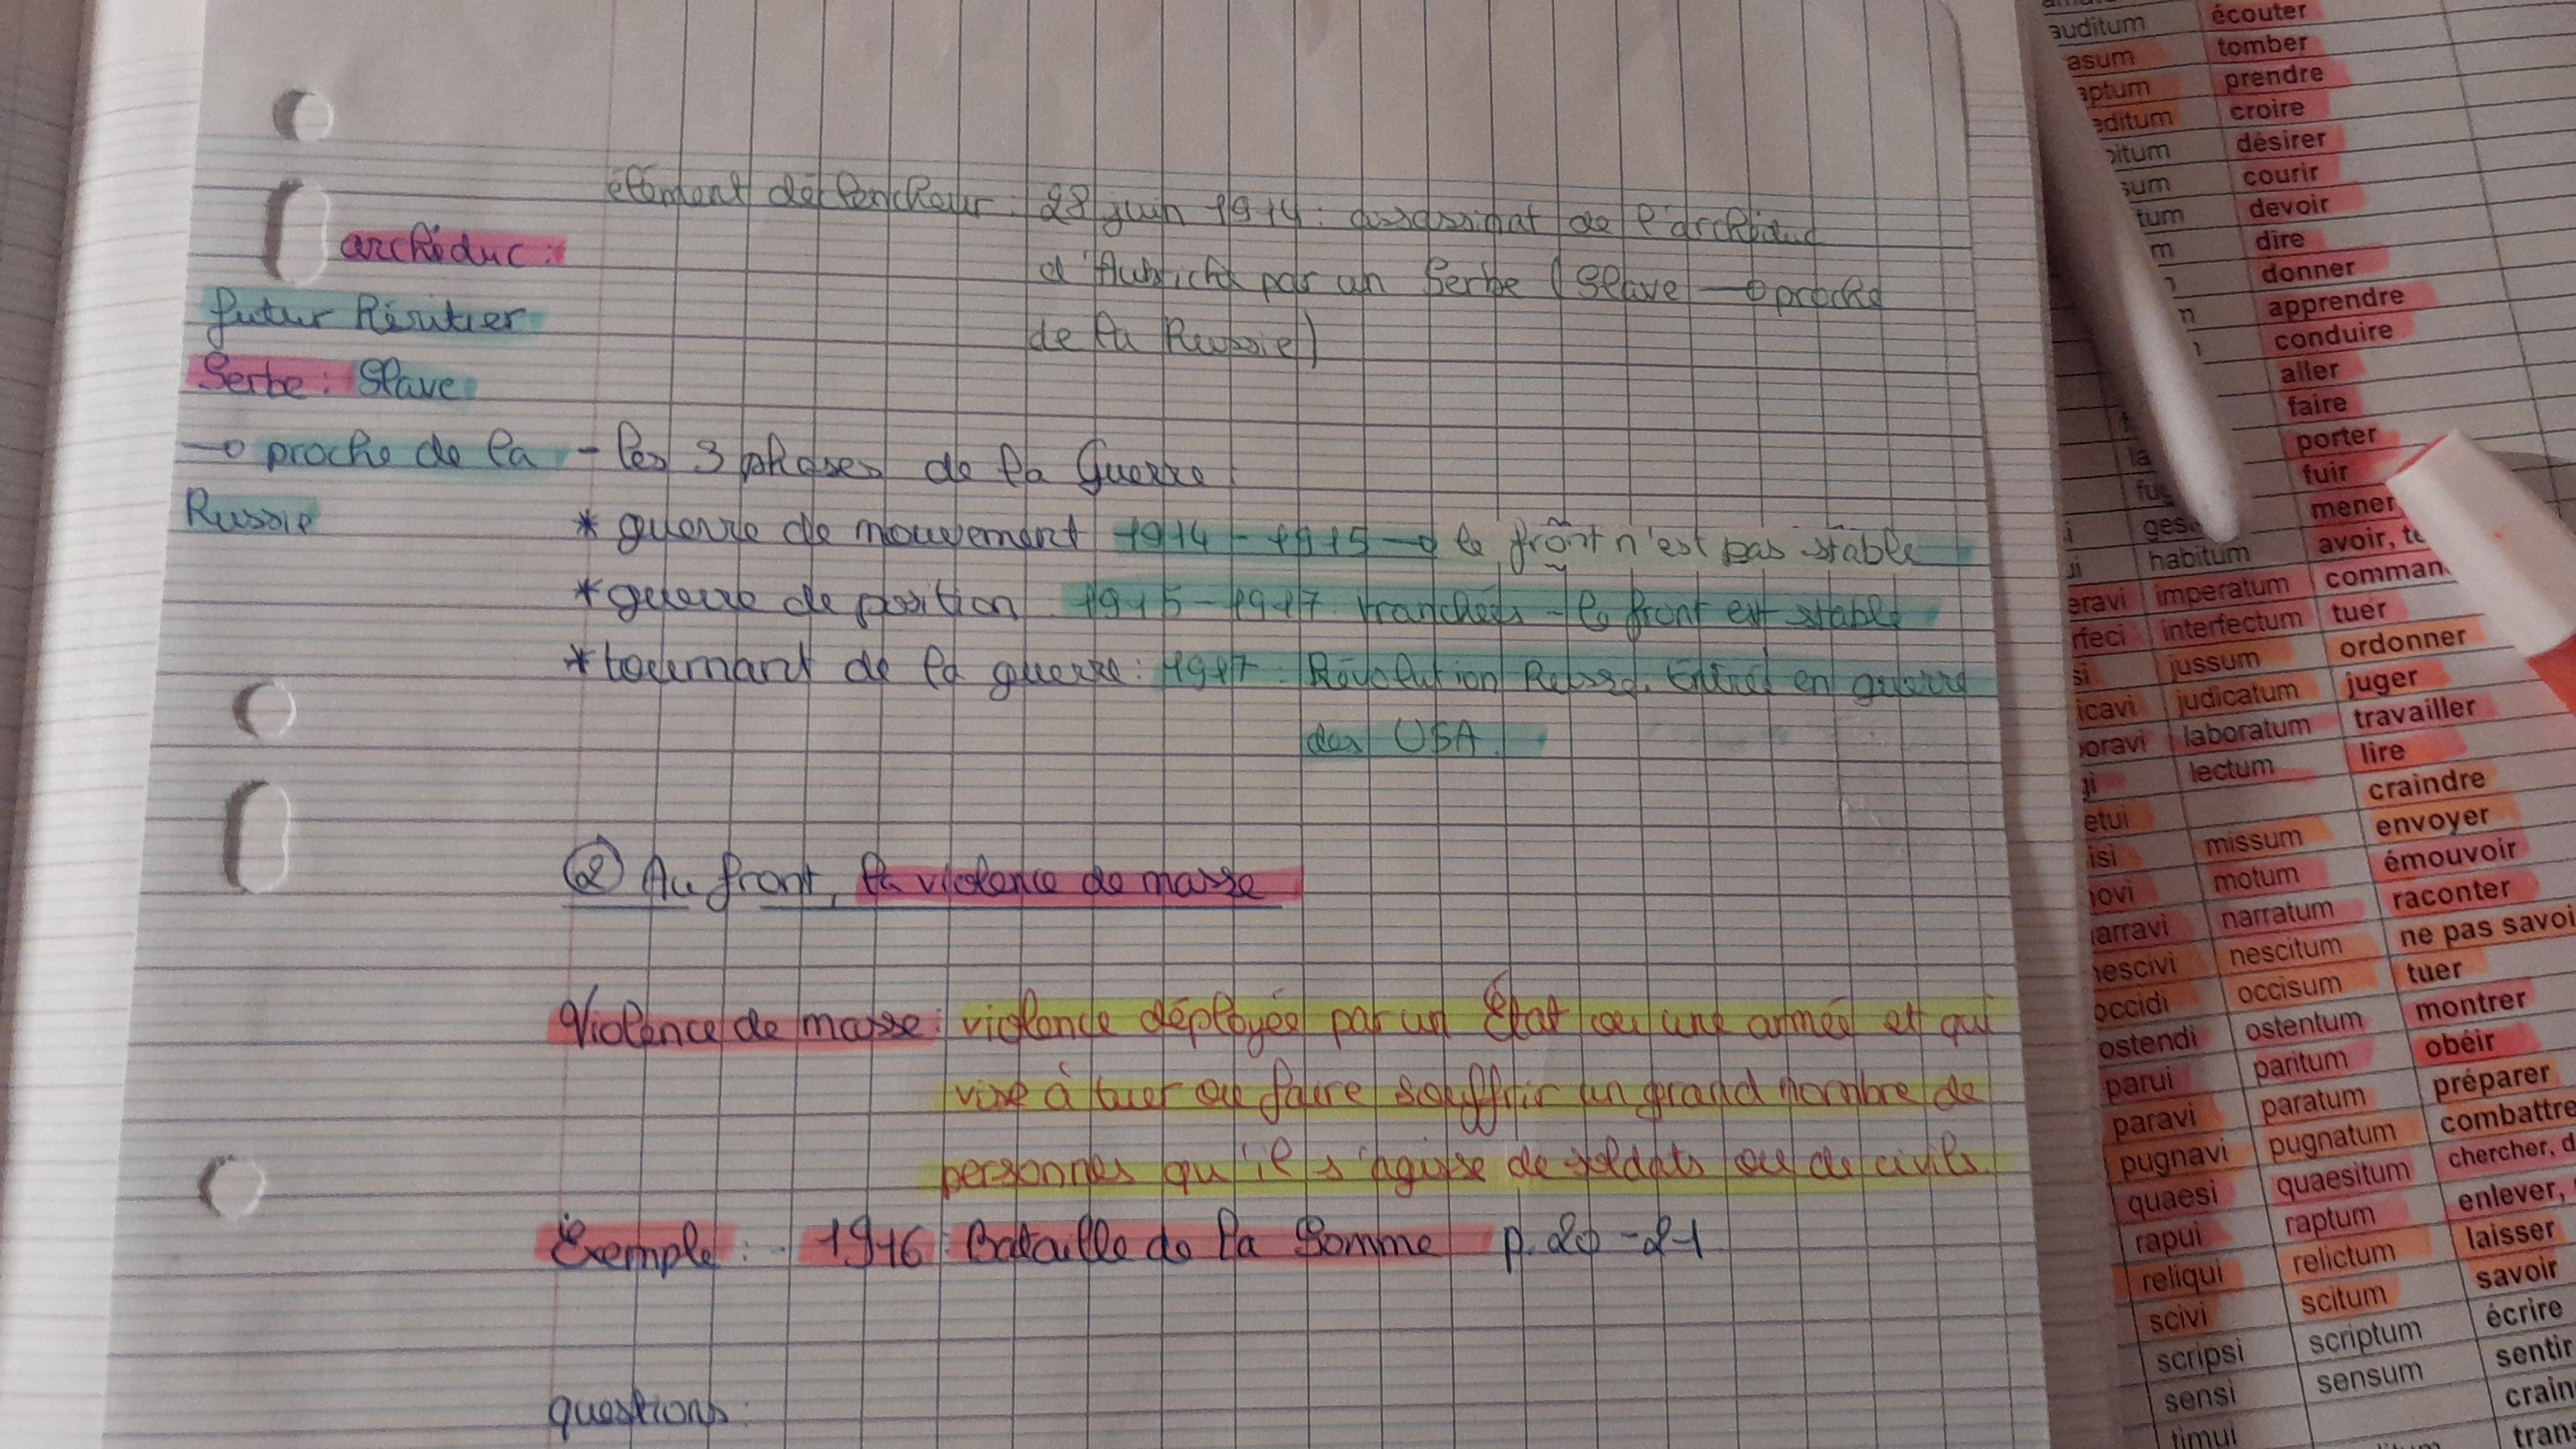 élément déclencheur : 28 juin 1914 : assassinat de l'archiduc
archéduc :
d'Autriche par un Serbe (Slave → proche
futur héritier
de la Russie)
Serbe : Slave
→ proche de la
- les 3 phases de la Guerre
Russie
* guerre de mouvement 1914 - 1915 → le front n'est pas stable
* guerre de position 1915 - 1917 tranchées - le front est stable
* tournant de la guerre : 1917 : Révolution Russe. Entrée en guerre
des USA.
② Au front, la violence de masse
Violence de masse : violence déployée par un État ou une armée et qui
vise à tuer ou faire souffrir un grand nombre de
personnes qu'il s'agisse de soldats ou de civils
Exemple : 1916 : Bataille de la Somme p. 20 - 21
questions :
auditum écouter
asum tomber
aptum prendre
editum croire
pitum désirer
sum courir
tum devoir
m dire
donner
n apprendre
conduire
aller
faire
porter
fuir
ges mener
habitum avoir, te
eravi imperatum comman
rfeci interfectum tuer
si jussum ordonner
icavi judicatum juger
oravi laboratum travailler
gi lectum lire
etui craindre
isi missum envoyer
novi motum émouvoir
arravi narratum raconter
nescivi nescitum ne pas savoi
occidi occisum tuer
ostendi ostentum montrer
parui paritum obéir
paravi paratum préparer
pugnavi pugnatum combattre
quaesi quaesitum chercher, d
rapui raptum enlever,
reliqui relictum laisser
scivi scitum savoir
scripsi scriptum écrire
sensi sensum sentir
timui crain
tran